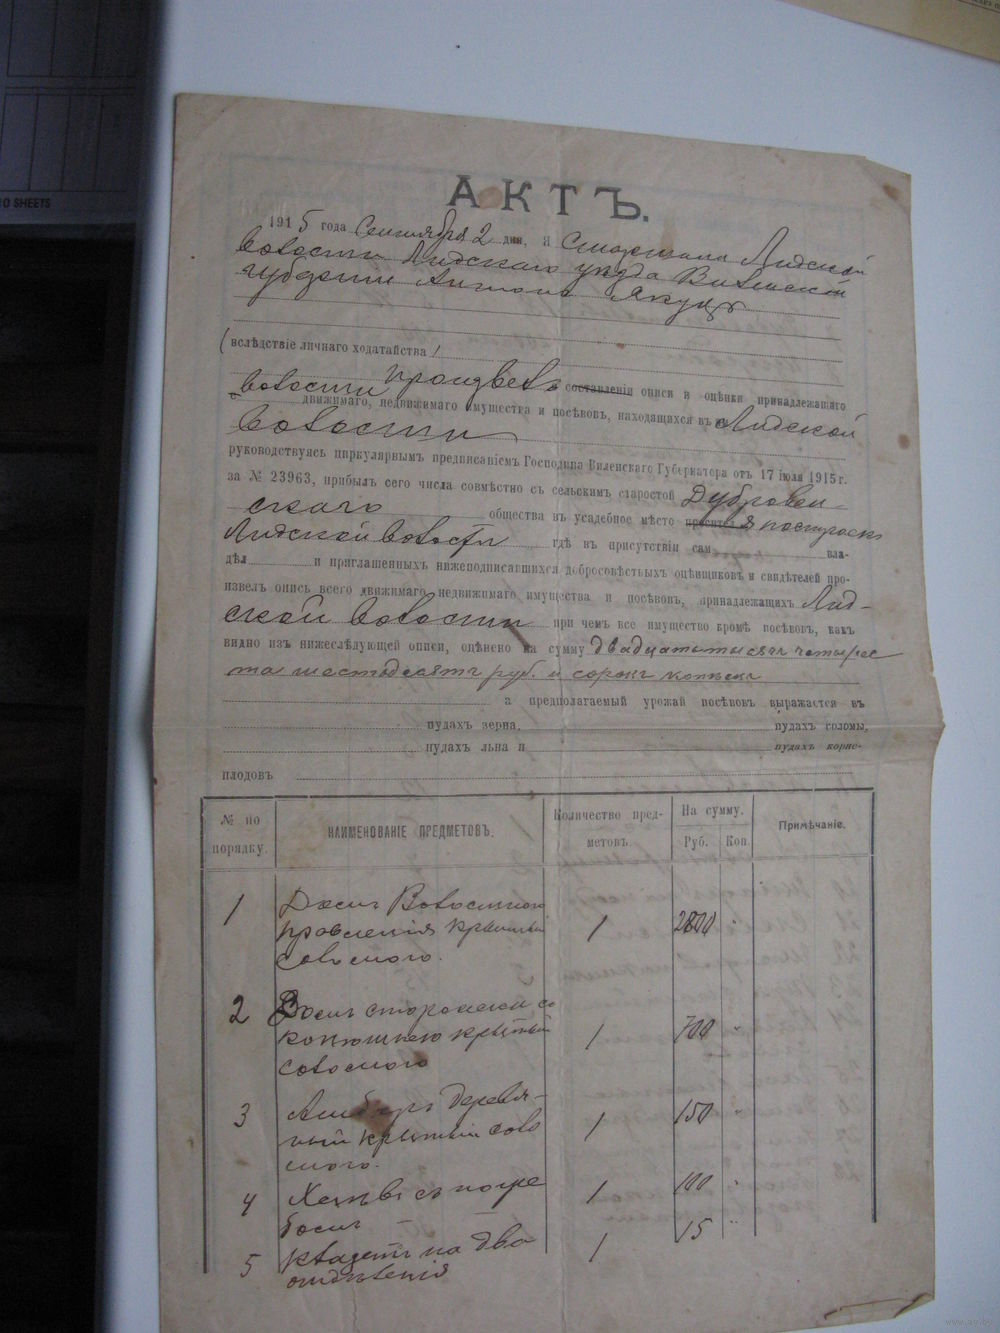 0 SHEETS
АКТЪ.
1915 года Сентября 2 дня, Я Старшина Лидской
волости Лидскаго уѣзда Виленской
губерніи Антонъ Якуць
(вслѣдствіе личнаго ходатайства)
волости произвелъ составленіи описи и оцѣнки принадлежащаго
движимаго, недвижимаго имущества и посѣвовъ, находящихся въ Лидской
волости
руководствуясь циркулярнымъ предписаніемъ Господина Виленскаго Губернатора отъ 17 іюля 1915 г.
за № 23963, прибылъ сего числа совмѣстно съ сельскимъ старостой Дубровен-
скаго общества въ усадебное мѣсто построекъ
Лидской волости гдѣ въ присутствіи сам вла-
дѣл и приглашенныхъ нижеподписавшихся добросовѣстныхъ оцѣнщиковъ и свидѣтелей про-
извелъ опись всего движимаго недвижимаго имущества и посѣвовъ, принадлежащихъ Лид-
ской волости при чемъ все имущество кромѣ посѣвовъ, какъ
видно изъ нижеслѣдующей описи, оцѣнено на сумму двадцать тысяч четырес
та шестьдесятъ руб. и сорокъ копѣекъ
а предполагаемый урожай посѣвовъ выражается въ
пудахъ зерна, пудахъ соломы,
пудахъ льна и пудахъ корне-
плодовъ
№ по порядку. НАИМЕНОВАНІЕ ПРЕДМЕТОВЪ. Количество пред-метовъ. На сумму. Руб. Коп Примѣчаніе.
1 Домъ Волостного 1 2800 "
правленія крытый
соломою.
2 Домъ сторожки со 1 700 "
конюшнею крытый
соломою
3 Амбаръ деревян- 1 150 "
ный крытый соло
мою.
4 Хлѣвъ съ погре 1 100 "
бомъ
5 Клазетъ на два 1 15 "
отдѣленія
www.ay.by